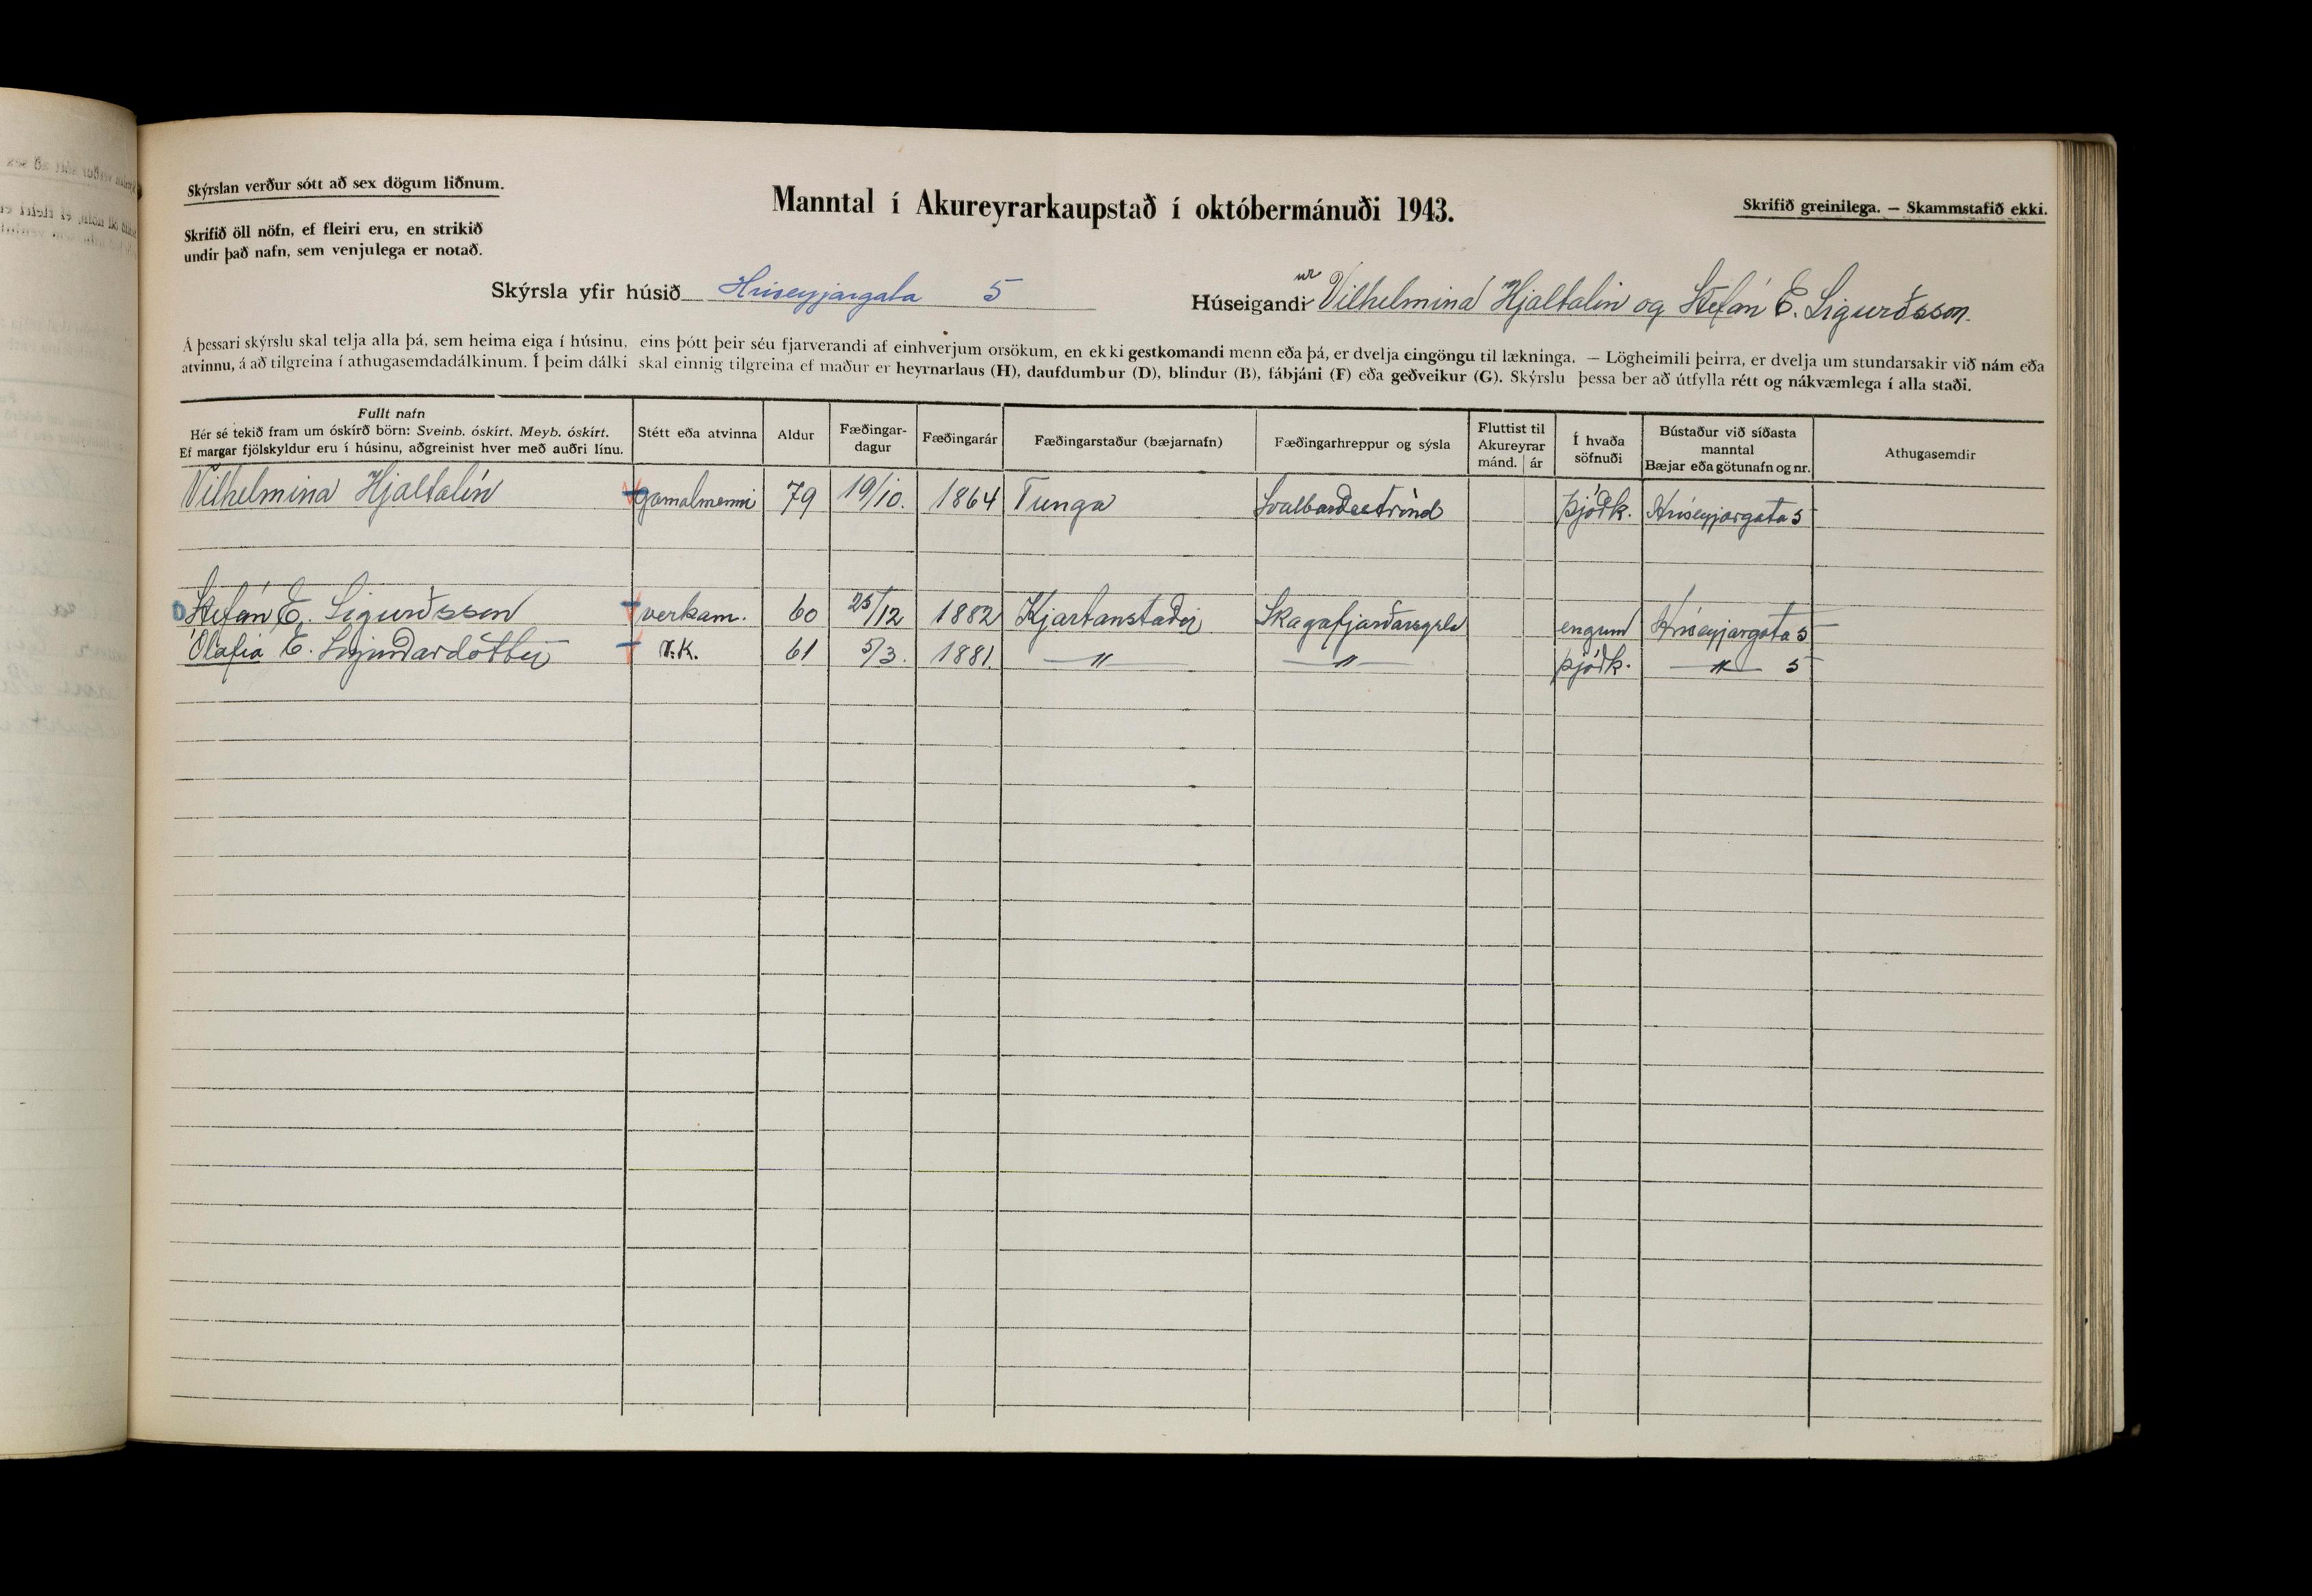 Skýrslan verður sótt að sex dögum liðnum.
Skrifið öll nöfn, ef fleiri eru, en strikið
undir það nafn, sem venjulega er notað.
Manntal í Akureyrarkaupstað í októbermánuði 1943.
Skrifið greinilega. — Skammstafið ekki.
Skýrsla yfir húsið Hríseyjargata 5
Húseigandi ur Vilhelmína Hjaltalín og Stefán E. Sigurðsson.
Á þessari skýrslu skal telja alla þá, sem heima eiga í húsinu, eins þótt þeir séu fjarverandi af einhverjum orsökum, en ekki gestkomandi menn eða þá, er dvelja eingöngu til lækninga. — Lögheimili þeirra, er dvelja um stundarsakir við nám eða
atvinnu, á að tilgreina í athugasemdadálkinum. Í þeim dálki skal einnig tilgreina ef maður er heyrnarlaus (H), daufdumbur (D), blindur (B), fábjáni (F) eða geðveikur (G). Skýrslu þessa ber að útfylla rétt og nákvæmlega í alla staði.
Fullt nafn
Hér sé tekið fram um óskírð börn: Sveinb. óskírt. Meyb. óskírt.
Ef margar fjölskyldur eru í húsinu, aðgreinist hver með auðri línu.
Stétt eða atvinna
Aldur
Fæðingar-
dagur
Fæðingarár
Fæðingarstaður (bæjarnafn)
Fæðingarhreppur og sýsla
Fluttist til
Akureyrar
mánd. ár
Í hvaða
söfnuði
Bústaður við síðasta
manntal
Bæjar eða götunafn og nr.
Athugasemdir
Vilhelmína Hjaltalín gamalmenni 79 19/10. 1864 Tunga Svalbarðsströnd Þjóðk. Hríseyjargata 5
Stefán E. Sigurðsson verkam. 60 25/12 1882 Kjartanstaðir Skagafjarðarsýsla engum Hríseyjargata 5
Ólafía E. Sigurðardóttir V.K. 61 5/3. 1881. — " — — " — þjóðk. — " — 5